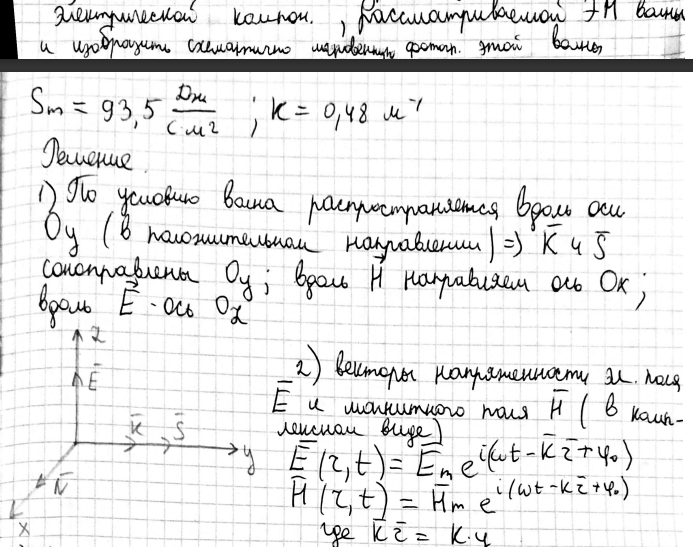 электрической компон. , рассматриваемой ЭМ волны
и изобразить схематично мгновенную фотогр. этой волны
Sm = 93,5 Дж/(с м²) ; k = 0,48 м⁻¹
Решение
1) По условию волна распространяется вдоль оси
Oy (в положительном направлении) => K̄ и S̄
сонаправлены Oy ; вдоль H⃗ направляем ось Ox ;
вдоль E⃗ - ось Oz
z
Ē
K̄ S̄ y
H̄
x
2) векторы напряженности эл. поля
Ē и магнитного поля H̄ ( в комп-
лексном виде)
Ē (r,t) = Ēm e^i(ωt - k̄r̄ + φ₀)
H̄ (r,t) = H̄m e^i(ωt - k̄r̄ + φ₀)
где k̄r̄ = k·y